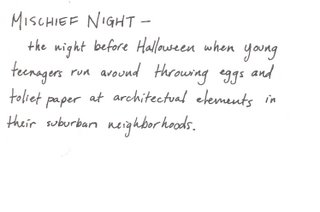 MISCHIEF NIGHT —
the night before Halloween when young
teenagers run around throwing eggs and
toliet paper at architectual elements in
their suburban neighborhoods.